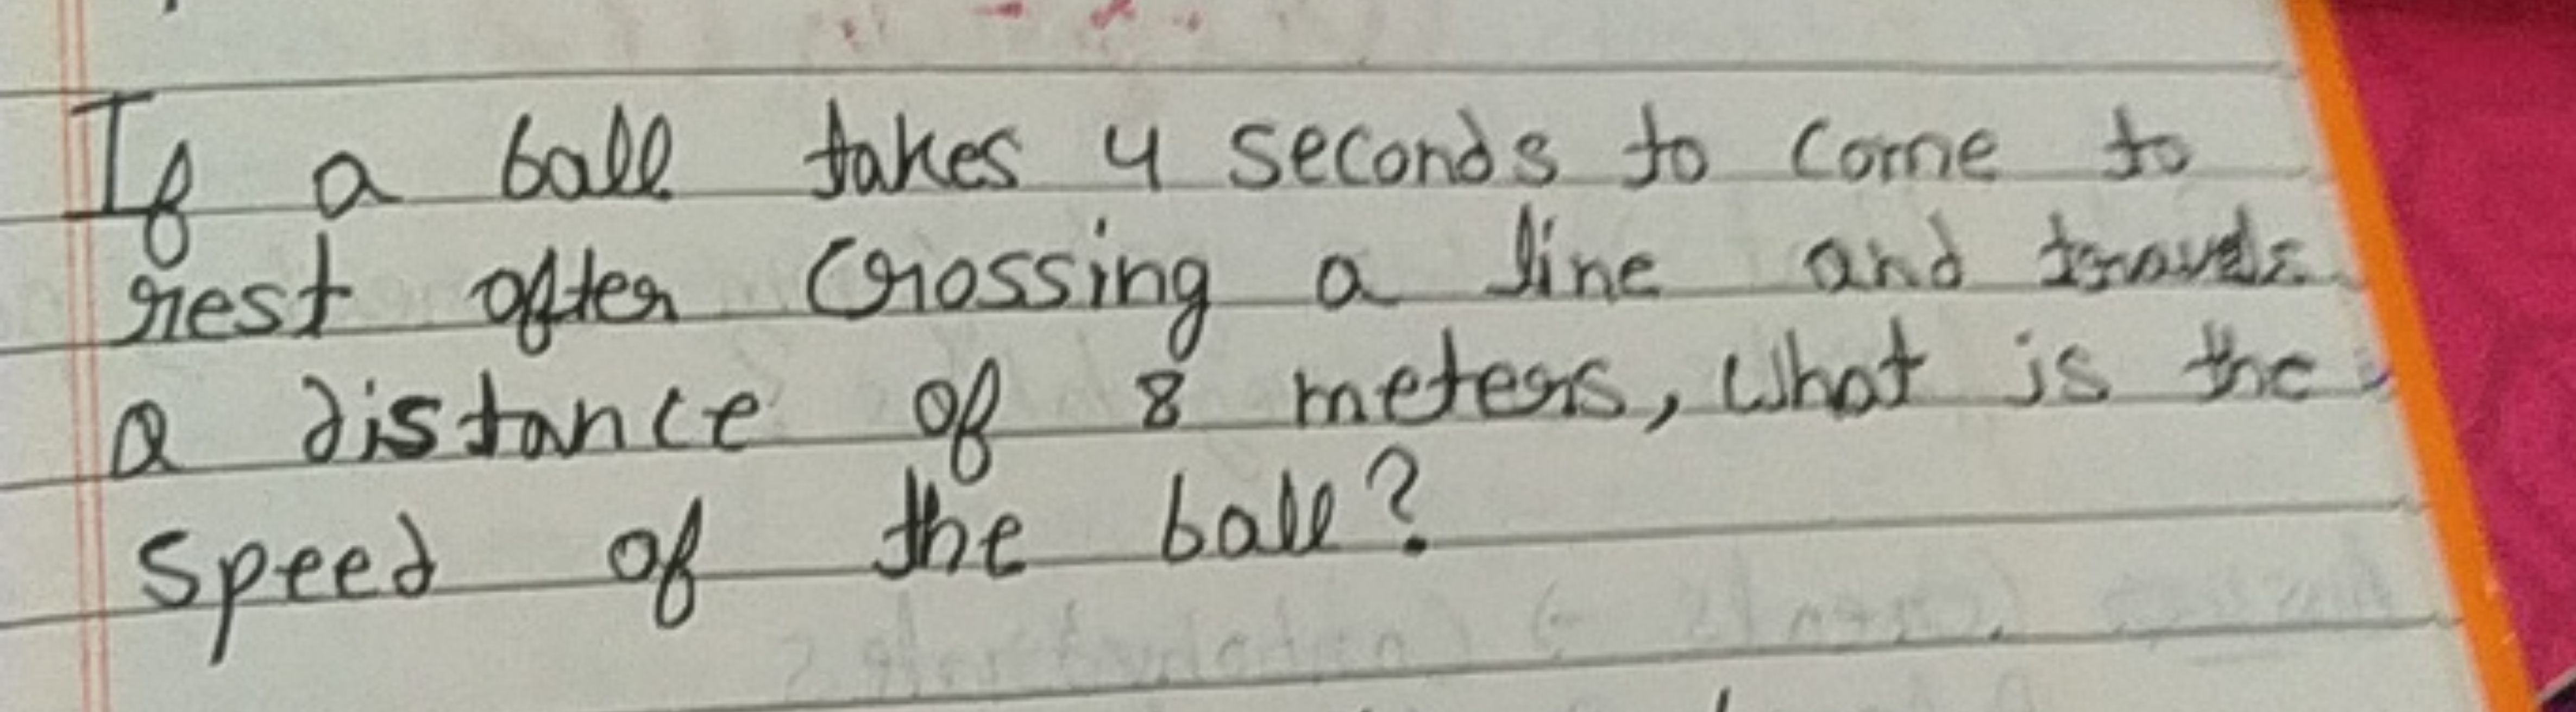 If a ball takes 4 seconds to come to
rest after crossing a line and travels
a distance of 8 meters, what is the
speed of the ball?